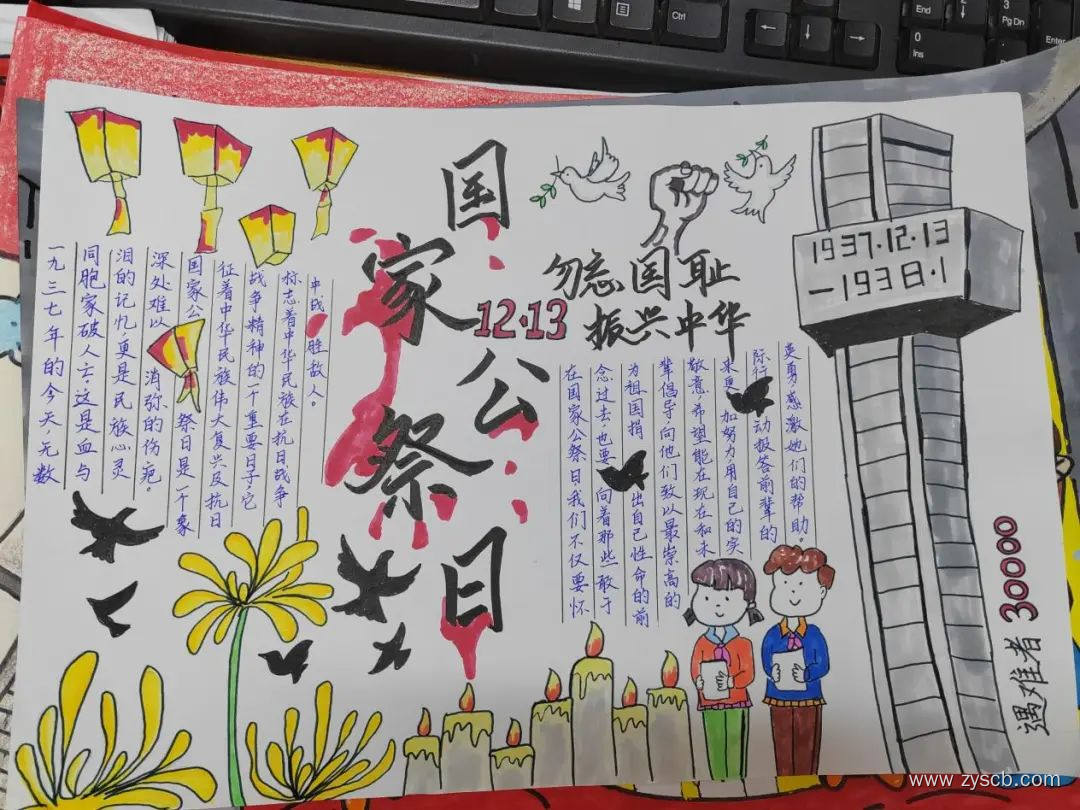 Ctrl
End
0
Ins
2
3
Pg Dn
Enter
国家公祭日
12·13
勿忘国耻
振兴中华
1937.12.13
—1938.1
一九三七年的今天,无数
同胞家破人亡,这是血与
泪的记忆更是民族心灵
深处难以消弥的伤疤。
国家公祭日是一个象
征着中华民族伟大复兴及抗日
战争精神的一个重要日子,它
标志着中华民族在抗日战争
中战胜敌人。
在国家公祭日我们不仅要怀
念过去,也要向着那些敢于
为祖国捐出自己性命的前
辈倡导,向他们致以最崇高的
敬意,希望能在现在和未
来更加努力用自己的实
际行动报答前辈的
英勇,感激她们的帮助。
遇难者 30000
www.zyscb.com